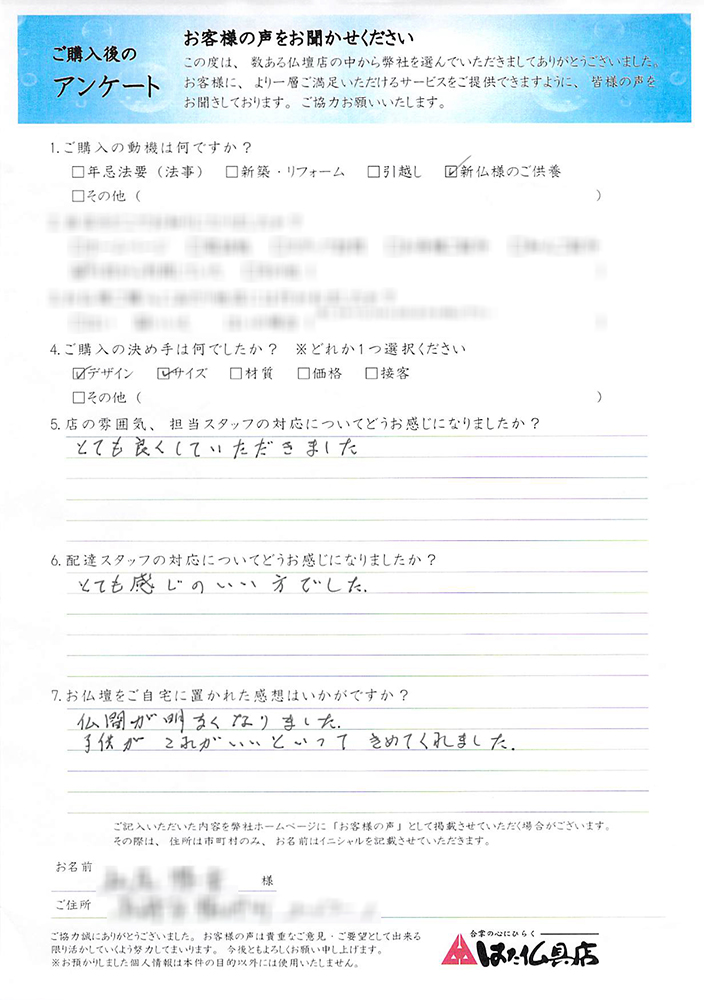 ご購入後の
アンケート
お客様の声をお聞かせください
この度は、数ある仏壇店の中から弊社を選んでいただきましてありがとうございました。
お客様に、より一層ご満足いただけるサービスをご提供できますように、皆様の声を
お聞きしております。ご協力お願いいたします。
1.ご購入の動機は何ですか？
□年忌法要（法事） □新築・リフォーム □引越し ☑新仏様のご供養
□その他（ ）
4.ご購入の決め手は何でしたか？ ※どれか1つ選択ください
☑デザイン ☑サイズ □材質 □価格 □接客
□その他（ ）
5.店の雰囲気、担当スタッフの対応についてどうお感じになりましたか？
とても良くしていただきました
6.配達スタッフの対応についてどうお感じになりましたか？
とても感じのいい方でした.
7.お仏壇をご自宅に置かれた感想はいかがですか？
仏間が明るくなりました.
子供がこれがいいといってきめてくれました.
ご記入いただいた内容を弊社ホームページに「お客様の声」として掲載させていただく場合がございます。
その際は、住所は市町村のみ、お名前はイニシャルを記載させていただきます。
お名前 様
ご住所
ご協力誠にありがとうございました。お客様の声は貴重なご意見・ご要望として出来る
限り活かしていくよう努力してまいります。今後ともよろしくお願い申し上げます。
※お預かりしました個人情報は本件の目的以外には使用いたしません。
合掌の心にひらく
はた仏具店